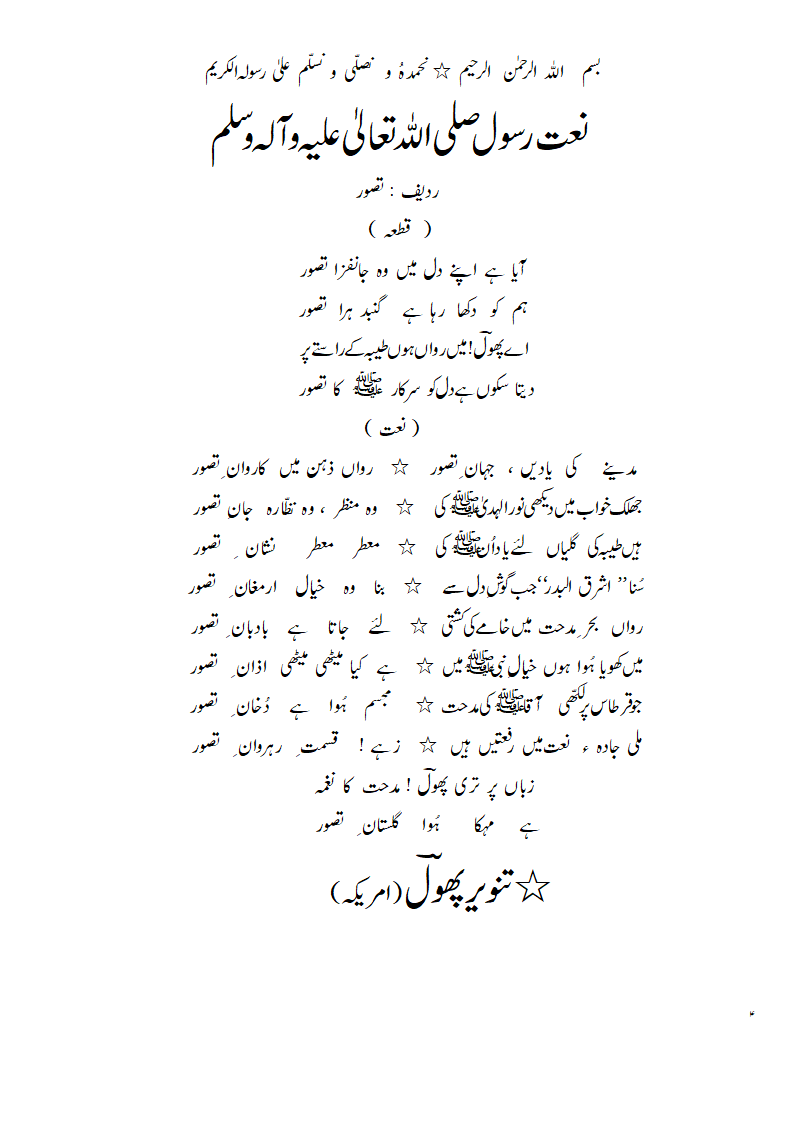 بسم اللہ الرحمٰن الرحیم ☆ نحمدہٗ و نصلّی و نسلّم علیٰ رسولہ الکریم
نعت رسول صلی اللہ تعالیٰ علیہ وآلہ وسلم
ردیف : تصور
( قطعہ )
آیا ہے اپنے دل میں وہ جانفزا تصور
ہم کو دکھا رہا ہے گنبد ہرا تصور
اے پھولؔ! میں رواں ہوں طیبہ کے راستے پر
دیتا سکوں ہے دل کو سرکار ﷺ کا تصور
( نعت )
مدینے کی یادیں ، جہانِ تصور ☆ رواں ذہن میں کاروانِ تصور
جھلک خواب میں دیکھی نورالہدیٰ ﷺ کی ☆ وہ منظر ، وہ نظّارہ جانِ تصور
ہیں طیبہ کی گلیاں لئے یاد اُن ﷺ کی ☆ معطر معطر نشانِ تصور
سُنا ’’ اشرق البدر‘‘ جب گوشِ دل سے ☆ بنا وہ خیال ارمغانِ تصور
رواں بحرِ مدحت میں خامے کی کشتی ☆ لئے جاتا ہے بادبانِ تصور
میں کھویا ہُوا ہوں خیالِ نبی ﷺ میں ☆ ہے کیا میٹھی میٹھی اذانِ تصور
جو قرطاس پر لکھّی آقا ﷺ کی مدحت ☆ مجسم ہُوا ہے دُخانِ تصور
ملی جادہ ء نعت میں رفعتیں ہیں ☆ زہے ! قسمتِ رہروانِ تصور
زباں پر تری پھولؔ ! مدحت کا نغمہ
ہے مہکا ہُوا گلستانِ تصور
☆ تنویر پھولؔ (امریکہ)
۴